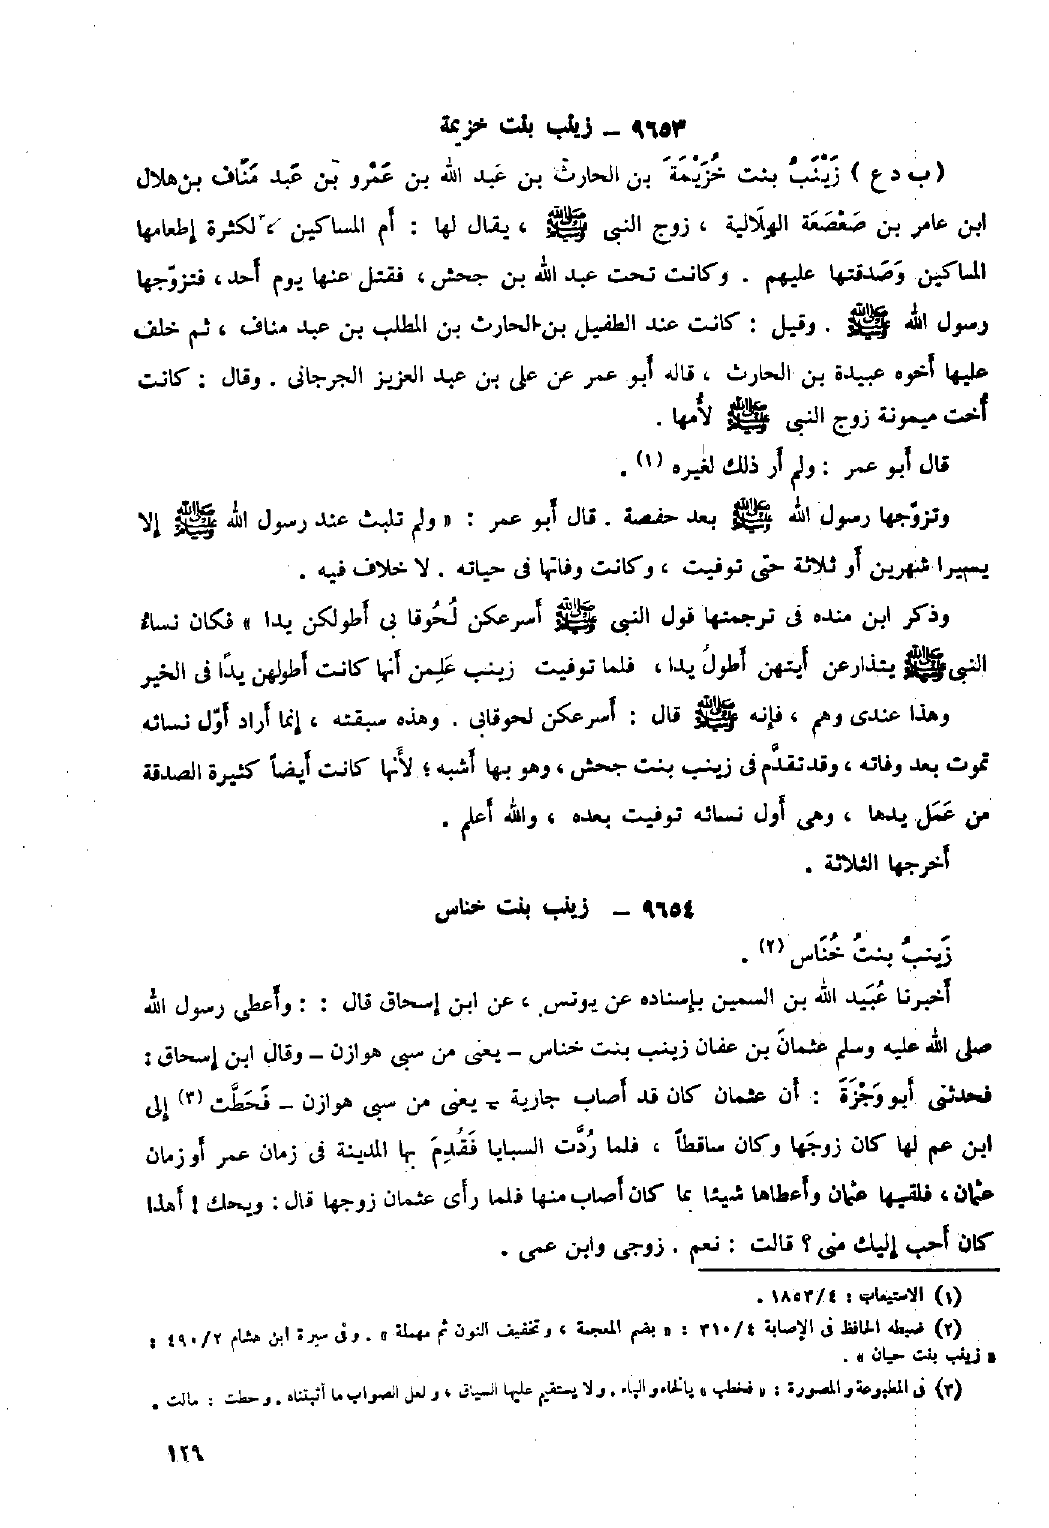 ٩٦٥٣ – زينب بنت خزيمة
(ب د ع) زَيْنَبُ بنت خُزَيْمَةَ بن الحارث بن عبد الله بن عَمْرو بن عبد مَنَاف بن هلال
ابن عامر بن صَعْصَعَة الهِلَالية ، زوج النبى ﷺ ، يقال لها : أم المساكين ، لكثرة إطعامها
المساكين وَصَدقتها عليهم . وكانت تحت عبد الله بن جحش ، فقتل عنها يوم أُحد ، فتزوّجها
رسول الله ﷺ . وقيل : كانت عند الطفيل بن الحارث بن المطلب بن عبد مناف ، ثم خلف
عليها أخوه عبيدة بن الحارث ، قاله أبو عمر عن على بن عبد العزيز الجرجانى . وقال : كانت
أُخت ميمونة زوج النبى ﷺ لأُمها .
قال أبو عمر : ولم أر ذلك لغيره (١) .
وتزوّجها رسول الله ﷺ بعد حفصة . قال أبو عمر : « ولم تلبث عند رسول الله ﷺ إلا
يسيرا شهرين أو ثلاثة حتى توفيت ، وكانت وفاتها فى حياته . لا خلاف فيه .
وذكر ابن منده فى ترجمتها قول النبى ﷺ أسرعكن لُحُوقا بى أطولكن يدا » فكان نساءُ
النبى ﷺ يتذارعن أيتهن أطولُ يدا ، فلما توفيت زينب عَلِمن أنها كانت أطولهن يدًا فى الخير
وهذا عندى وهم ، فإنه ﷺ قال : أسرعكن لحوقابى . وهذه سبقته ، إنما أراد أوّل نسائه
تموت بعد وفاته ، وقد تقدَّم فى زينب بنت جحش ، وهو بها أشبه ؛ لأنها كانت أيضاً كثيرة الصدقة
من عَمَل يدها ، وهى أول نسائه توفيت بعده ، والله أعلم .
أخرجها الثلاثة .
٩٦٥٤ – زينب بنت خناس
زَينبُ بنتُ خُنَاس (٢) .
أخبرنا عُبَيد الله بن السمين بإسناده عن يونس ، عن ابن إسحاق قال : : وأعطى رسول الله
صلى الله عليه وسلم عثمانَ بن عفان زينب بنت خناس – يعنى من سبى هوازن – وقال ابن إسحاق :
فحدثنى أبو وَجْزَةَ : أن عثمان كان قد أصاب جارية – يعنى من سبى هوازن – فَحَطَّت (٣) إلى
ابن عم لها كان زوجَها وكان ساقطاً ، فلما رُدَّت السبايا فَقُدِمَ بها المدينة فى زمان عمر أو زمان
عثمان ، فلقيها عثمان وأعطاها شيئا بما كان أصاب منها فلما رأى عثمان زوجها قال : ويحك ! أهذا
كان أحب إليك منى ؟ قالت : نعم . زوجى وابن عمى .
(١) الاستيعاب : ٤/١٨٥٣ .
(٢) ضبطه الحافظ فى الإصابة ٤/٣١٠ : « بضم المعجمة ، وتخفيف النون ثم مهملة » . وفى سيرة ابن هشام ٢/٤٩٠ :
« زينب بنت حيان » .
(٣) فى المطبوعة والمصورة : « فخطب » بالخاء والباء . ولا يستقيم عليها السياق ، ولعل الصواب ما أثبتناه . وحطت : مالت .
١٢٩